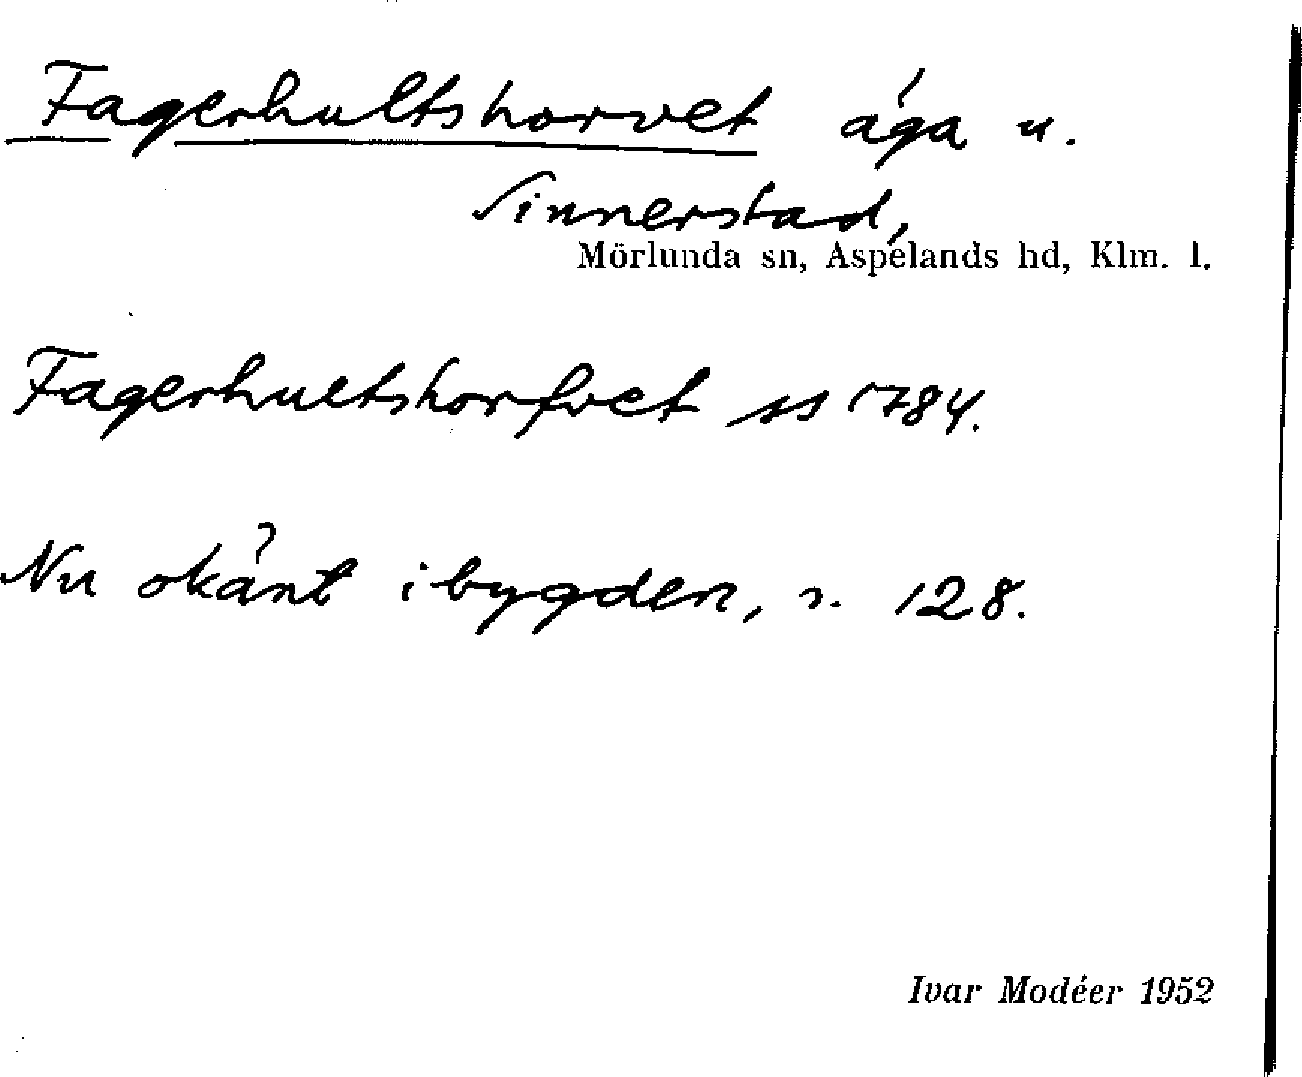 Fagerhultshorvet äga u.
Sinnerstad,
Mörlunda sn, Aspelands hd, Klm. l.
Fagerhultshorfvet ss 1784.
Nu okänt i bygden, s. 128.
Ivar Modéer 1952